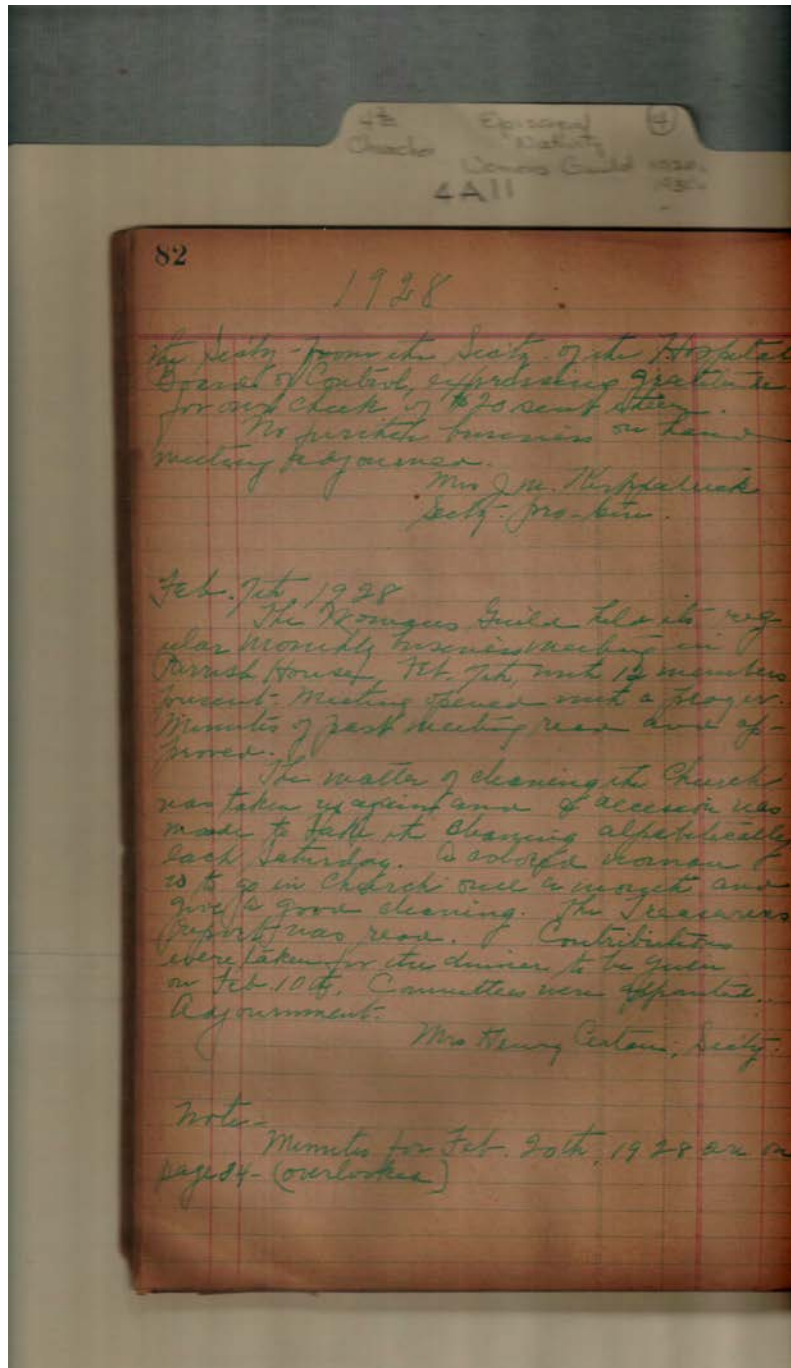 4
Episcopal
Church Nativity
Womens Guild 1920s
1930s
4A11
82
1928
the Secty - from the Secty. of the Hospital
Board of Control, expressing gratitude
for our check of $20 sent them.
No further business on hand
meeting adjourned.
Mrs J. M. Kirkpatrick
Secty - pro-tem.
Feb. 7th, 1928
The Womans Guild held its reg
ular monthly business meeting in
Parrish House, Feb. 7th, with 12 members
present. Meeting opened with a prayer.
Minutes of past meeting read and ap-
proved.
The matter of cleaning the Church
was taken up again and a decision was
made to take the cleaning alphabetically
each Saturday. A colored woman
is to go in Church once a month and
give a good cleaning. The Treasurers
report was read. Contributions
were taken for the dinner to be given
on Feb. 10th. Committees were appointed.
Adjournment.
Mrs Henry, Secty.
Note -
Minutes for Feb. 20th, 1928 are on
page 84 - (overlooked)